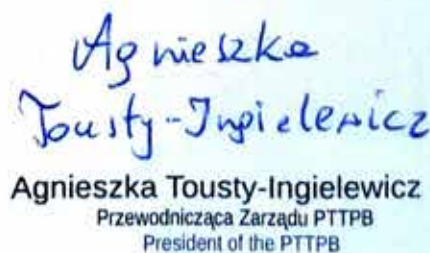 Agnieszka
Tousty-Ingielewicz
Agnieszka Tousty-Ingielewicz
Przewodnicząca Zarządu PTTPB
President of the PTTPB